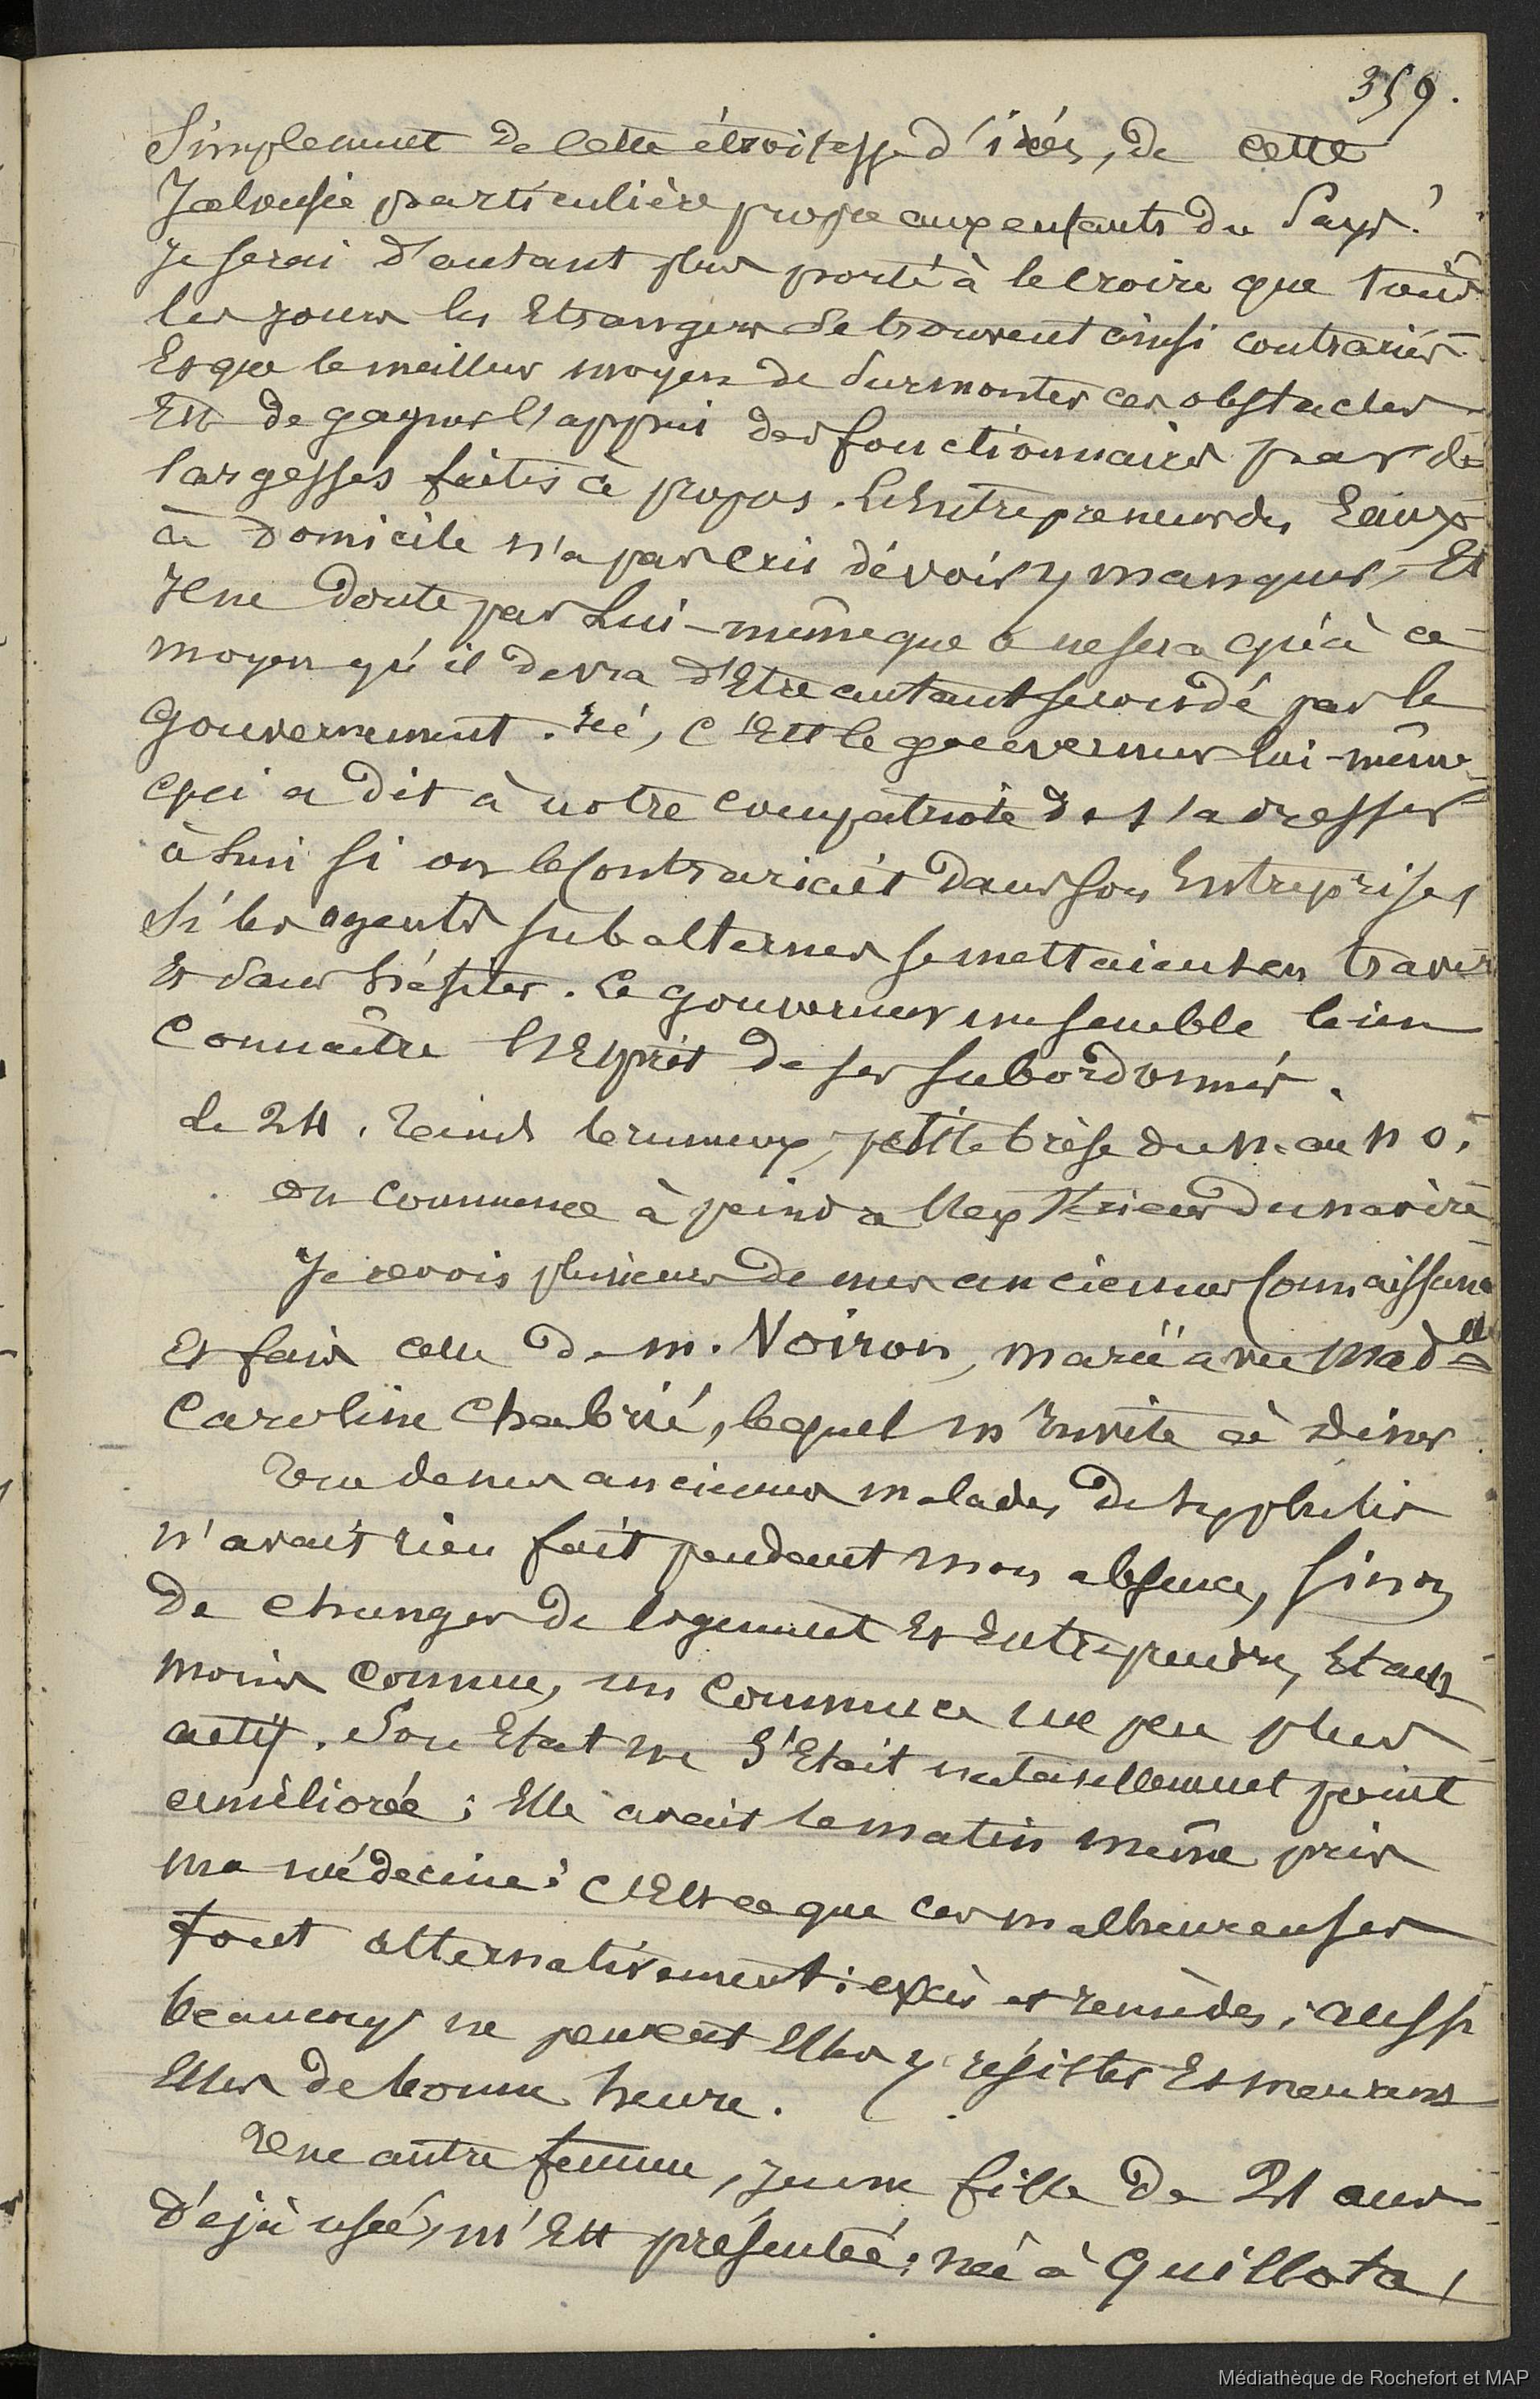 359.
Simplement de cette étroitesse d'idées, de cette
Jalousie particulière propre aux enfants du Pays?
Je serai d'autant plus porté à le croire que tous
les jours les Etrangers se trouvent ainsi contrariés
Et que le meilleur moyen de Surmonter ces obstacles
Est de gagner l'appui des fonctionnaires par de
largesses faites à propos. L'Entrepreneur des Eaux
à Domicile n'a pas cru dévoir y manquer, Et
Je ne Doute pas Lui-même que ce ne sera qu'à ce
moyen qu'il devra d'Etre autant secondé par le
Gouvernement. Ici, C'Est le gouverneur lui-même
qui a Dit à notre compatriote de s'adresser
à Lui si on le Contrariait dans son Entreprise,
Si les agents subalternes se mettaient en travers
Et Sans hésiter. Le gouverneur me semble bien
Connaître l'Esprit de ses subordonnés.
Le 24. Tems brumeux, petite brise du N. au N O.
on commence à peindre l'Extérieur du navire
Je revois plusieurs de mes anciennes Connaissances
Et fais celle de M. Noiron, marié avec Madelle
Caroline Chabrié, lequel m'Invite à Diner
Une de mes anciennes malades de Syphilis
n'avait rien fait pendant mon absence, sinon
De changer de logement Et Entreprendre, Etant
moins connue, un commerce un peu plus
actif. Son Etat ne S'Etait naturellement point
améliorée; Elle avait le matin même pris
ma médecine: C'Est ce que ces malheureuses
font alternativement: excès et remèdes; aussi
beaucoup ne peuvent Elles y résister Et meurent
Elles de bonne heure.
Une autre femme, jeune fille de 21 ans
Déjà usée, m'Est présentée; née à Quillota,
Médiathèque de Rochefort et MAP